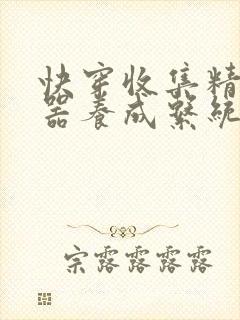 快穿收集精
器养成系统
宗露露露露